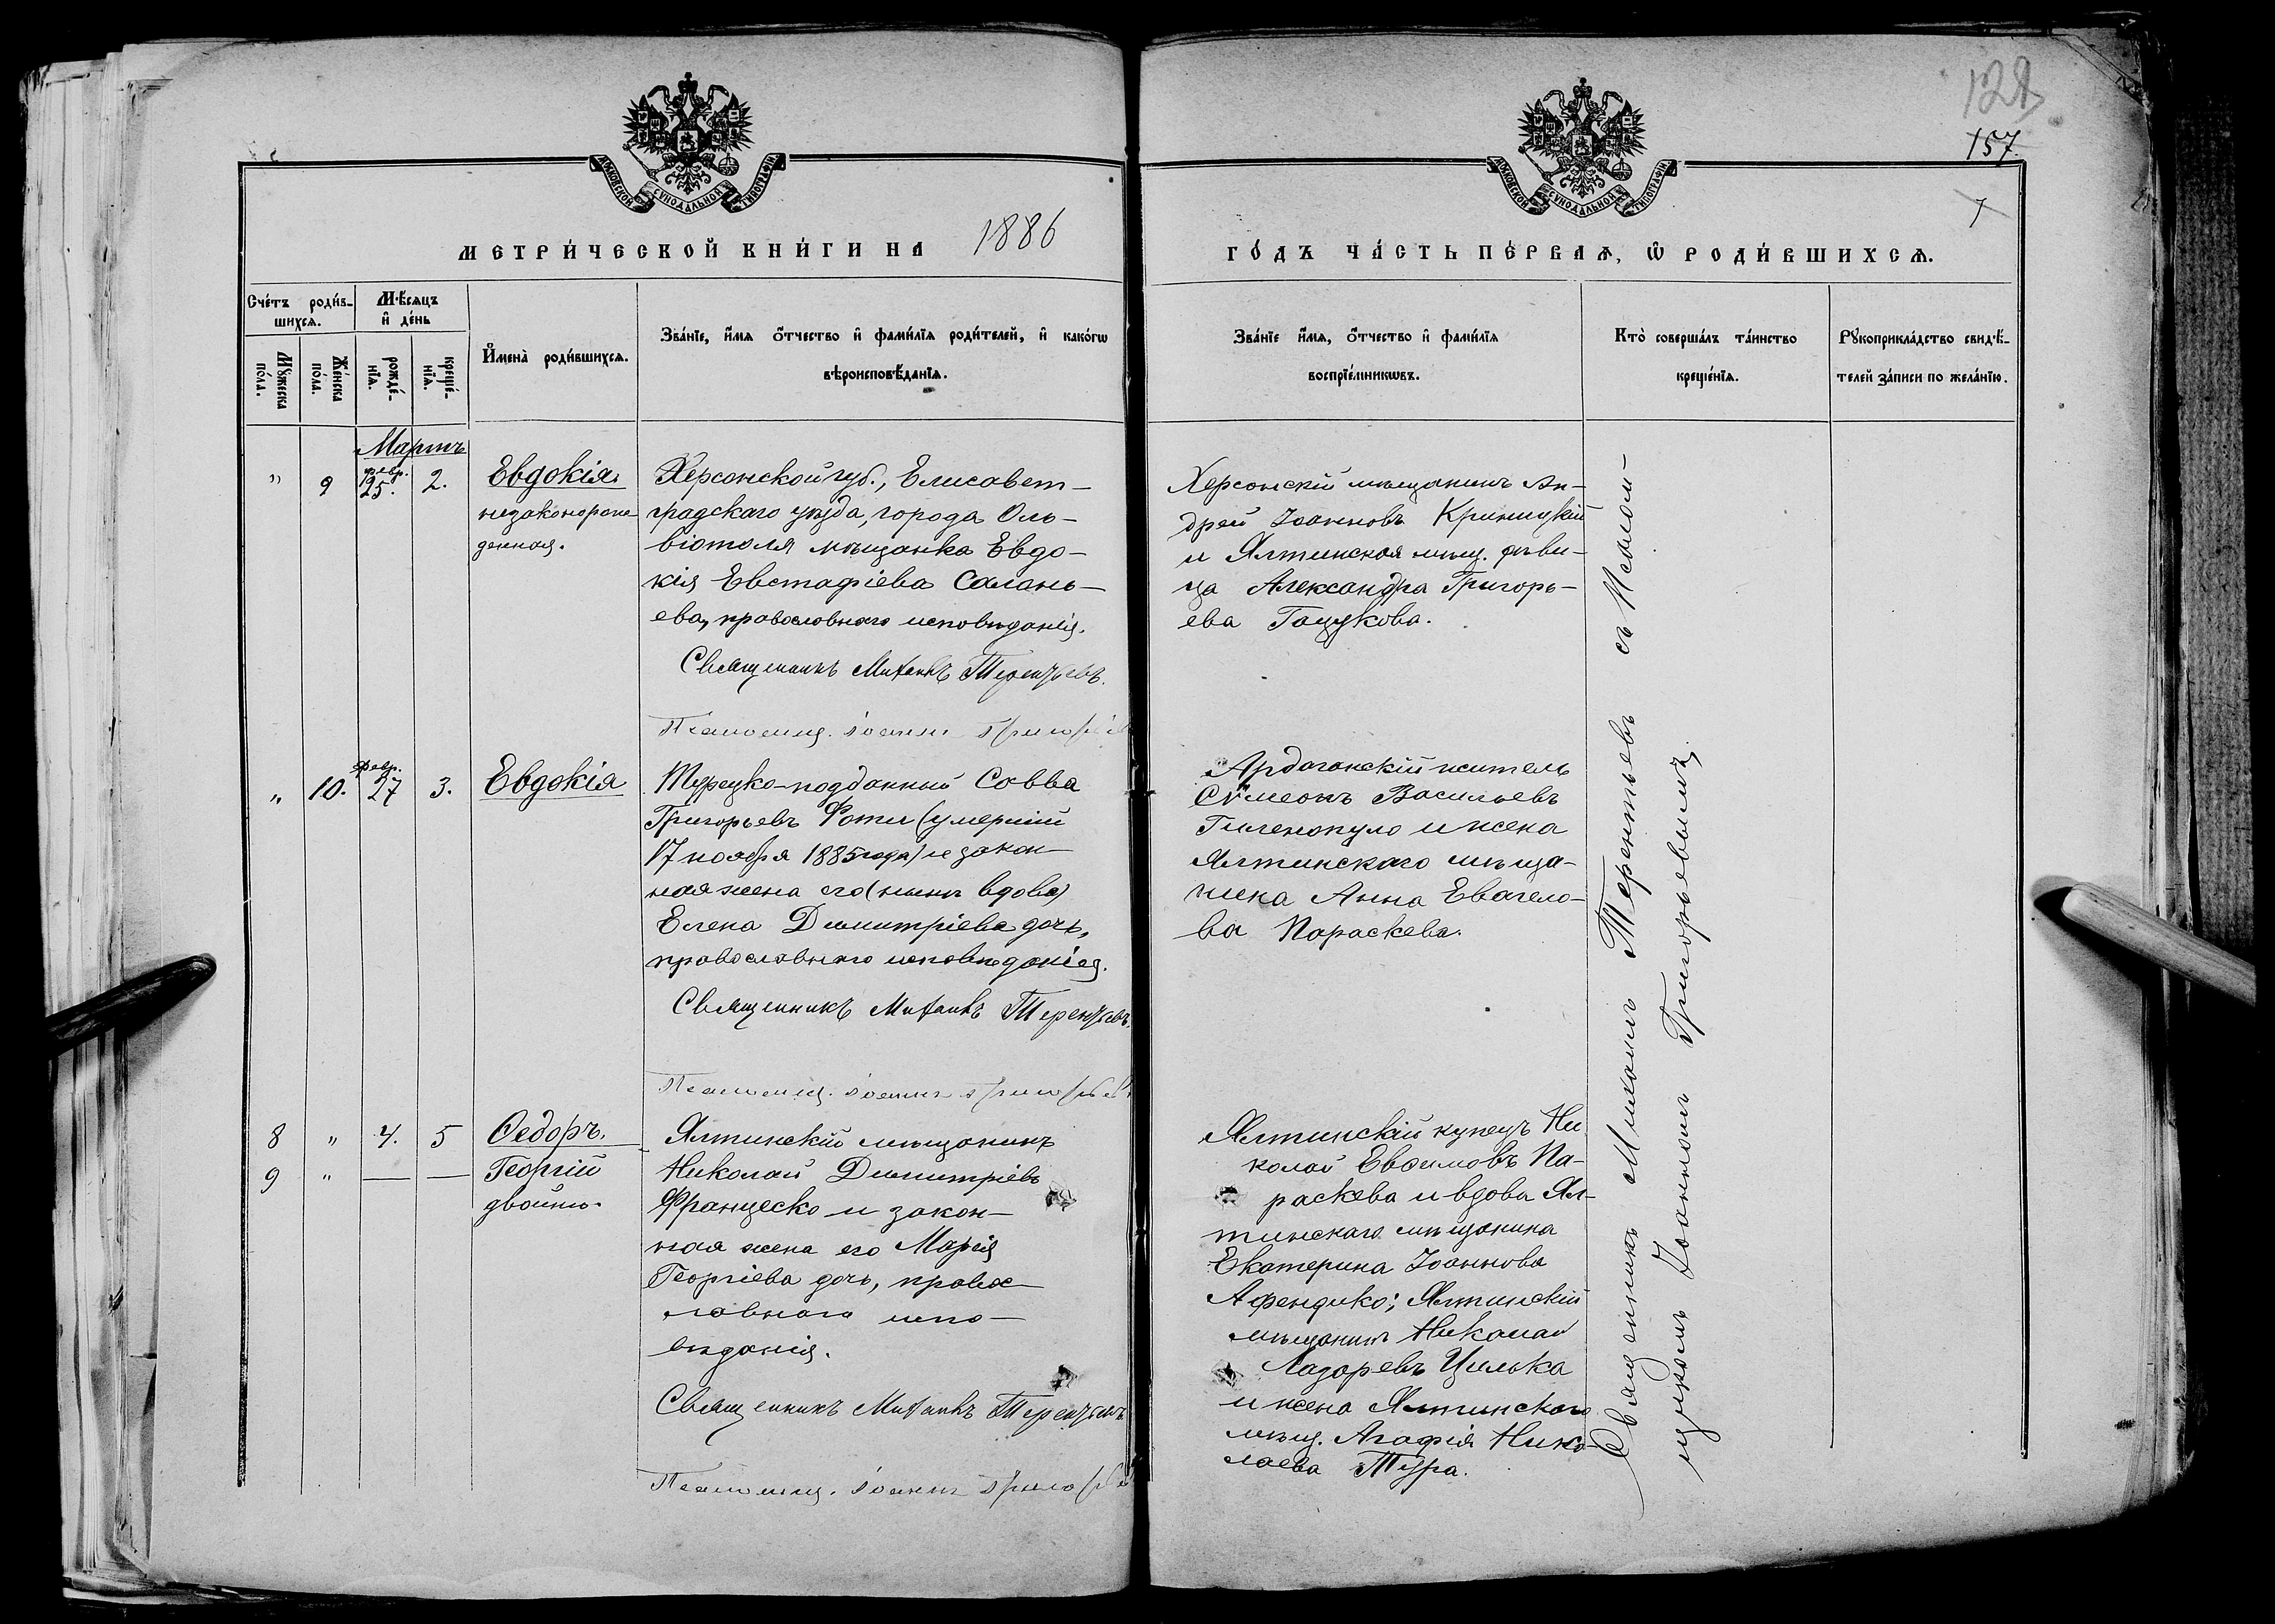 128
157.
7
МОСКОВСКОЙ СѴНОДАЛЬНОЙ ТИПОГРАФІИ
МОСКОВСКОЙ СѴНОДАЛЬНОЙ ТИПОГРАФІИ
МЕТРИ́ЧЕСКОЙ КНИ́ГИ НА 1886
ГО́ДЪ ЧА́СТЬ ПЕ́РВАѦ, Ѡ҆ РОДИ́ВШИХСѦ.
Сче́тъ роди́в-
шихсѧ.
Мѣ́сѧцъ
и҆ де́нь
Мꙋ́жеска
по́ла.
Же́нска
по́ла.
рожде́-
нїѧ.
креще́-
нїѧ.
И҆мена̀ роди́вшихсѧ.
Зва́нїе, и҆́мѧ ѻ҆́тчество и҆ фами́лїѧ роди́телей, и҆ како́гѡ
вѣроисповѣ́данїѧ.
Зва́нїе и҆́мѧ, ѻ҆́тчество и҆ фами́лїѧ
воспрїе́мникѡвъ.
Кто̀ соверша́лъ та́инство
креще́нїѧ.
Рꙋкоприкла́дство свидѣ́-
телей за́писи по жела́нїю.
Мартъ
" 9 февр. 25. 2. Евдокія
незаконорож
денная.
Херсонской губ., Елисавет-
градскаго уѣзда, города Оль-
віополя мѣщанка Евдо-
кія Евстафіева Салань-
ева, православнаго исповѣданія.
Священникъ Михаилъ Терентьевъ.
Псаломщ. Іоаннъ Григорьев
Херсонскій мѣщанинъ Ан-
дрей Іоанновъ Криницкій
и Ялтинская мѣщ. дѣви-
ца Александра Григорь-
ева Гацукова.
" 10. февр. 27 3. Евдокія
Турецко-подданный Савва
Григорьевъ Фоти (умершій
17 ноября 1885 года) и закон-
ная жена его (нынѣ вдова)
Елена Димитріева дочь,
православнаго исповѣданія.
Священникъ Михаилъ Терентьевъ.
Псаломщ. Іоаннъ Григорьев
Ардаганскій житель
Симеонъ Васильевъ
и жена
Ялтинскаго мѣща-
нина Анна Евагело-
ва Параскева.
8 " 4. 5 Ѳедоръ.
9 " — — Георгій
двойни.
Ялтинскій мѣщанинъ
Николай Димитріевъ
Францеско и закон-
ная жена его Марія
Георгіева дочь, правос
лавнаго испо-
вѣданія.
Священникъ Михаилъ Терентьевъ
Псаломщ. Іоаннъ Григорьев
Ялтинскій купецъ Ни
колай Евѳимовъ Па-
раскева и вдова Ял-
тинскаго мѣщанина
Екатерина Іоаннова
Афендико; Ялтинскій
мѣщанинъ Николай
Лазаревъ Цилька
и жена Ялтинскаго
мѣщ. Агафія Нико-
лаева Тура.
Священникъ Михаилъ Терентьевъ съ Псалом-
щикомъ Іоанномъ Григорьевымъ.